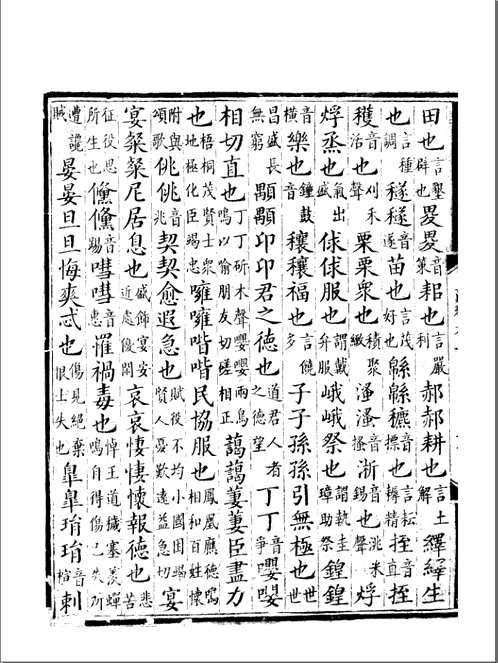 田也言墾辟也畟畟音策耜也言嚴利郝郝耕也言土解繹繹生
也言種調穟穟音遂苗也言茂好也緜緜穮音摽也言耘耨精挃音直挃
穫音活也刈禾聲栗栗衆也積聚緻溞溞音搔淅音錫也洮米聲烰
烰烝也氣出盛俅俅服也謂戴弁服峨峨祭也謂執圭璋助祭鍠鍠
音橫樂也鐘鼓音穰穰福也言饒多子子孫孫引無極也世世
昌盛長無窮顒顒卬卬君之德也道君人者之德望丁丁音爭嚶嚶
相切直也丁丁斫木聲嚶嚶兩鳥鳴以喻朋友切磋相正藹藹萋萋臣盡力
也梧桐茂賢士衆地極化臣竭忠噰噰喈喈民協服也鳳凰應德鳴相和百姓懷
附興頌歌佻佻音兆契契愈遐急也賦役不均小國困竭賢人憂歎遠益急切宴
宴粲粲尼居息也盛飾宴安近處優閑哀哀悽悽懷報德也悲苦
征役思所生也儵儵音錫嘒嘒音惠罹禍毒也悼王道穢塞羨蟬鳴自得傷己失所
遭讒賊晏晏旦旦悔爽忒也傷見絕棄恨士失也皐皐琄琄音楦刺